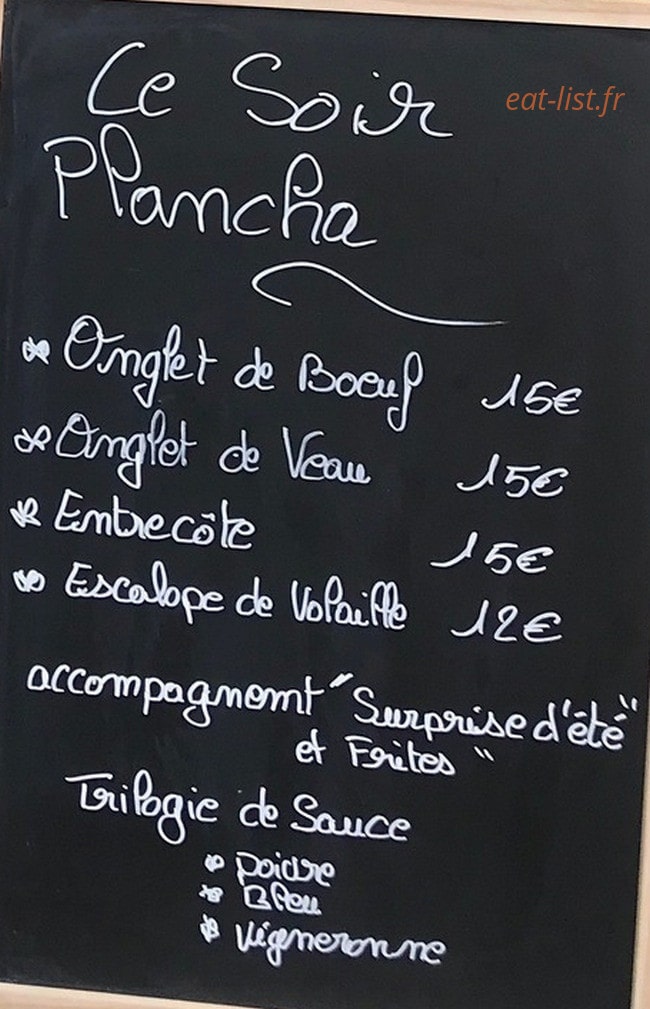 Ce Soir
eat-list.fr
Plancha
* Onglet de Boeuf 15€
* Onglet de Veau 15€
* Entrecôte 15€
* Escalope de Volaille 12€
accompagnemt "Surprise d'été"
et Frites "
Trilogie de Sauce
* poivre
* Bleu
* vigneronne